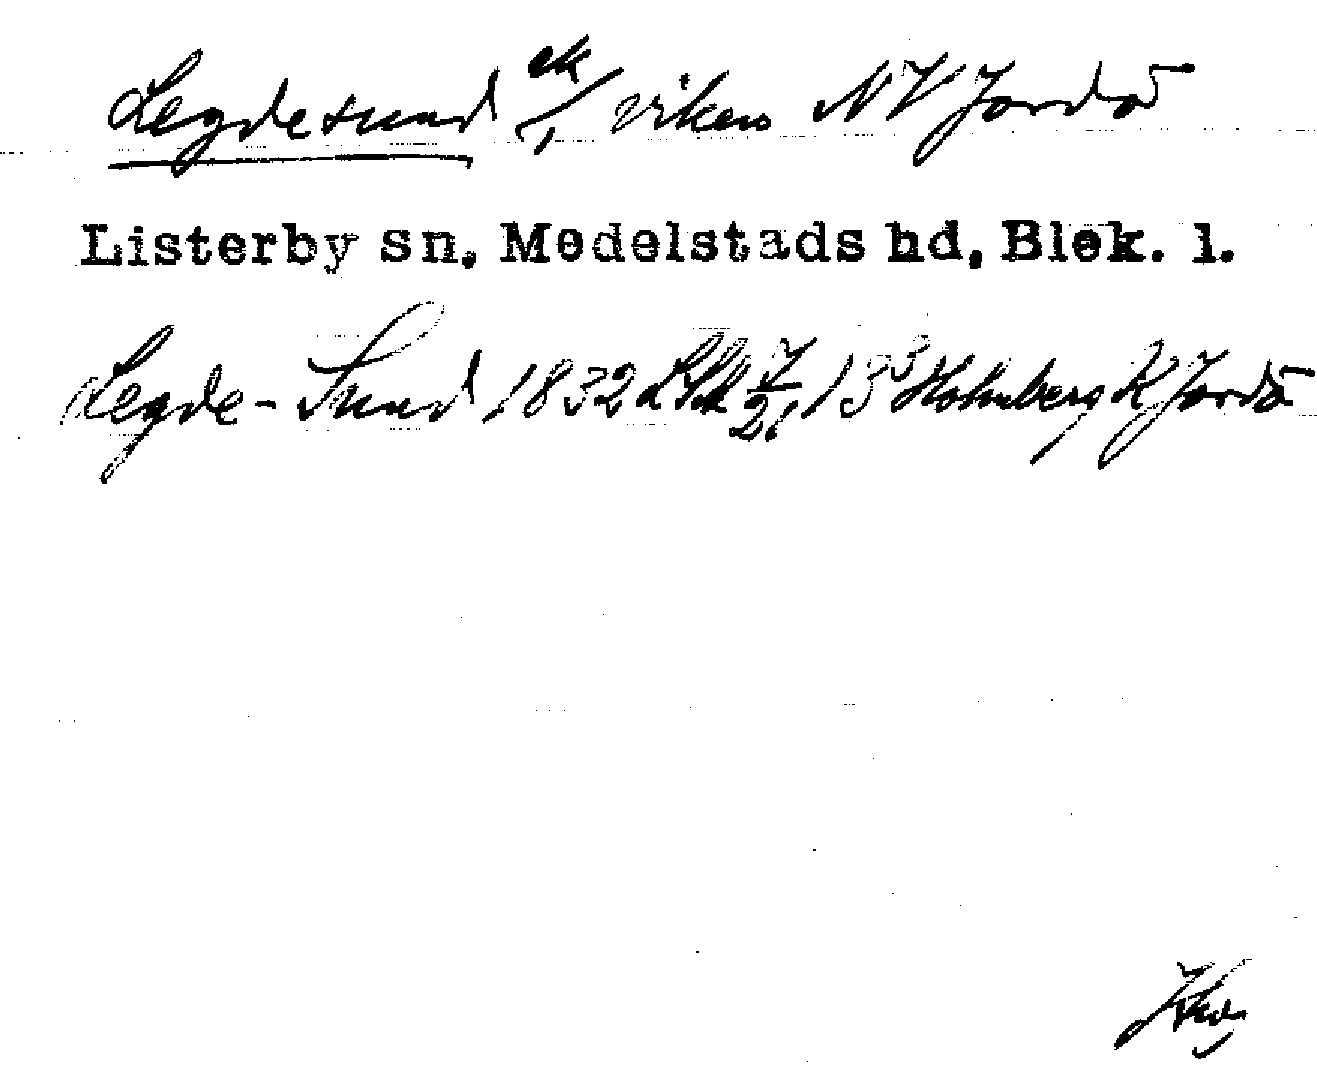 Legdesund ek/, viken NV Jordö
Listerby sn, Medelstads hd, Blek. l.
Legde-Sund 1832 7/2, 13 Holmberg K Jordö